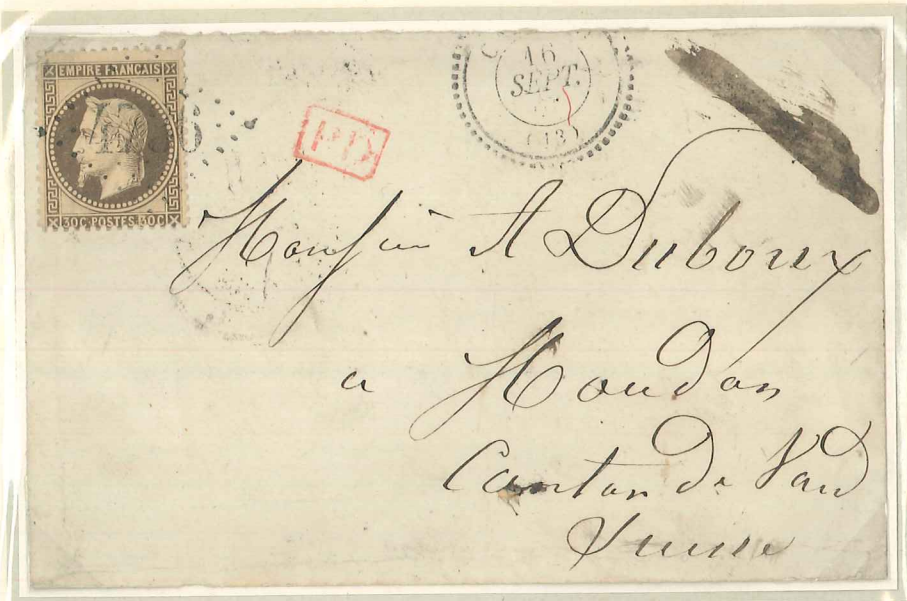 EMPIRE FRANÇAIS
30C POSTES 30C
P.D.
16
SEPT.
Monsieur A Duboux
a Moudon
Canton de Vaud
Suisse